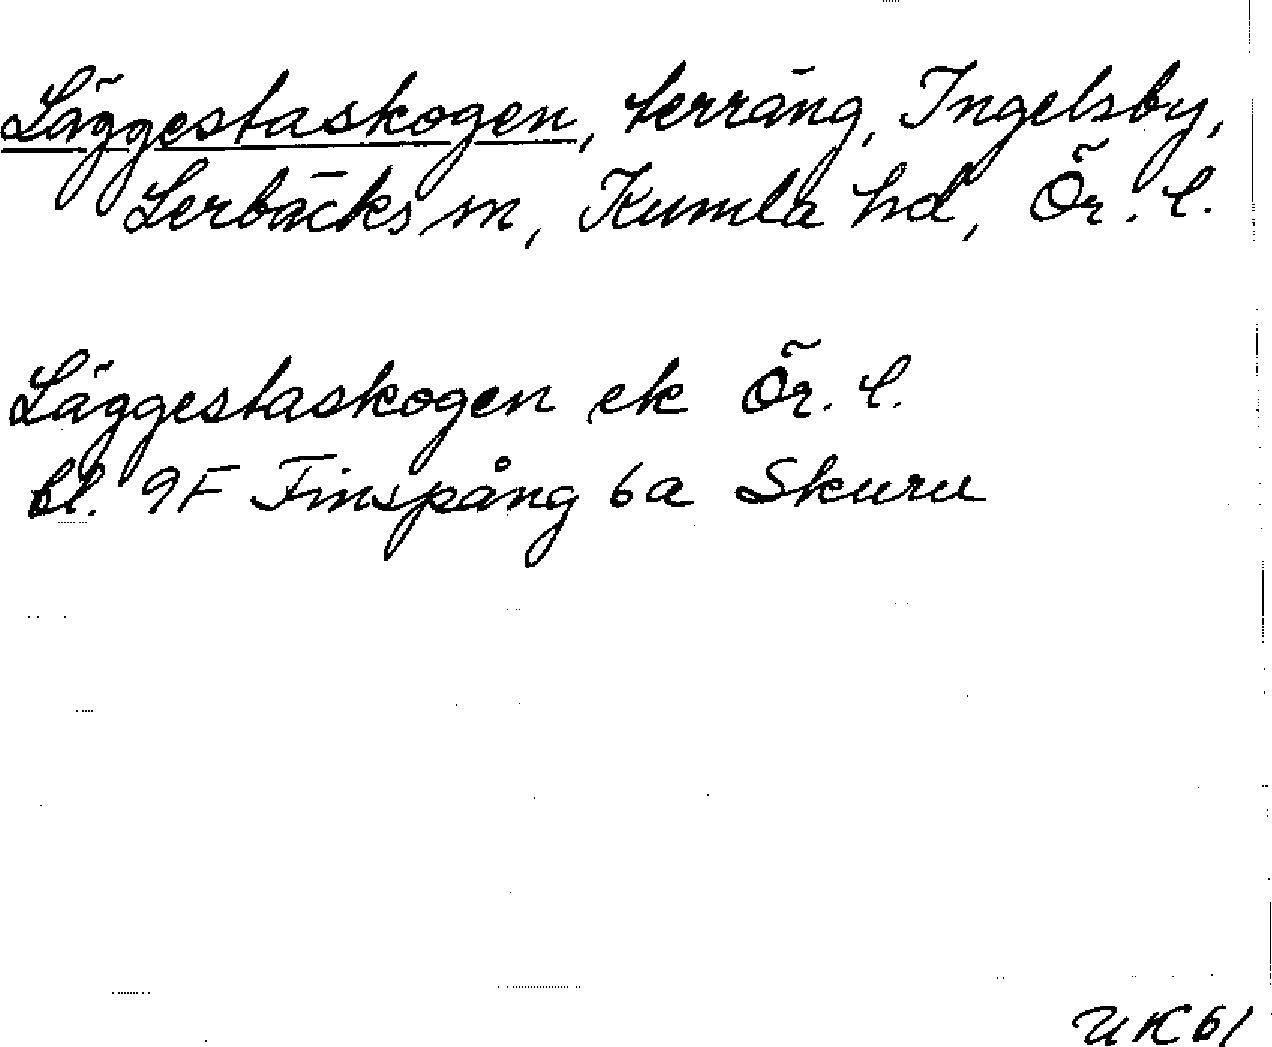 Läggestaskogen, terräng, Ingelsby,
Lerbäcks sn, Kumla hd, Ör. l.
Läggestaskogen ek Ör. l.
bl. 9F Finspång 6a Skuru
UK61